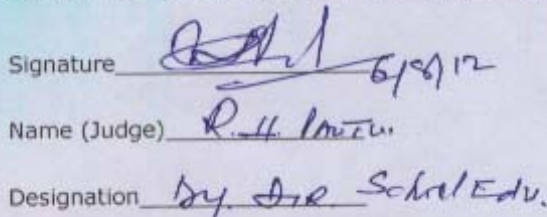 Signature 6/8/12
Name (Judge) R. H.
Designation Dy. Dir. School Edu.